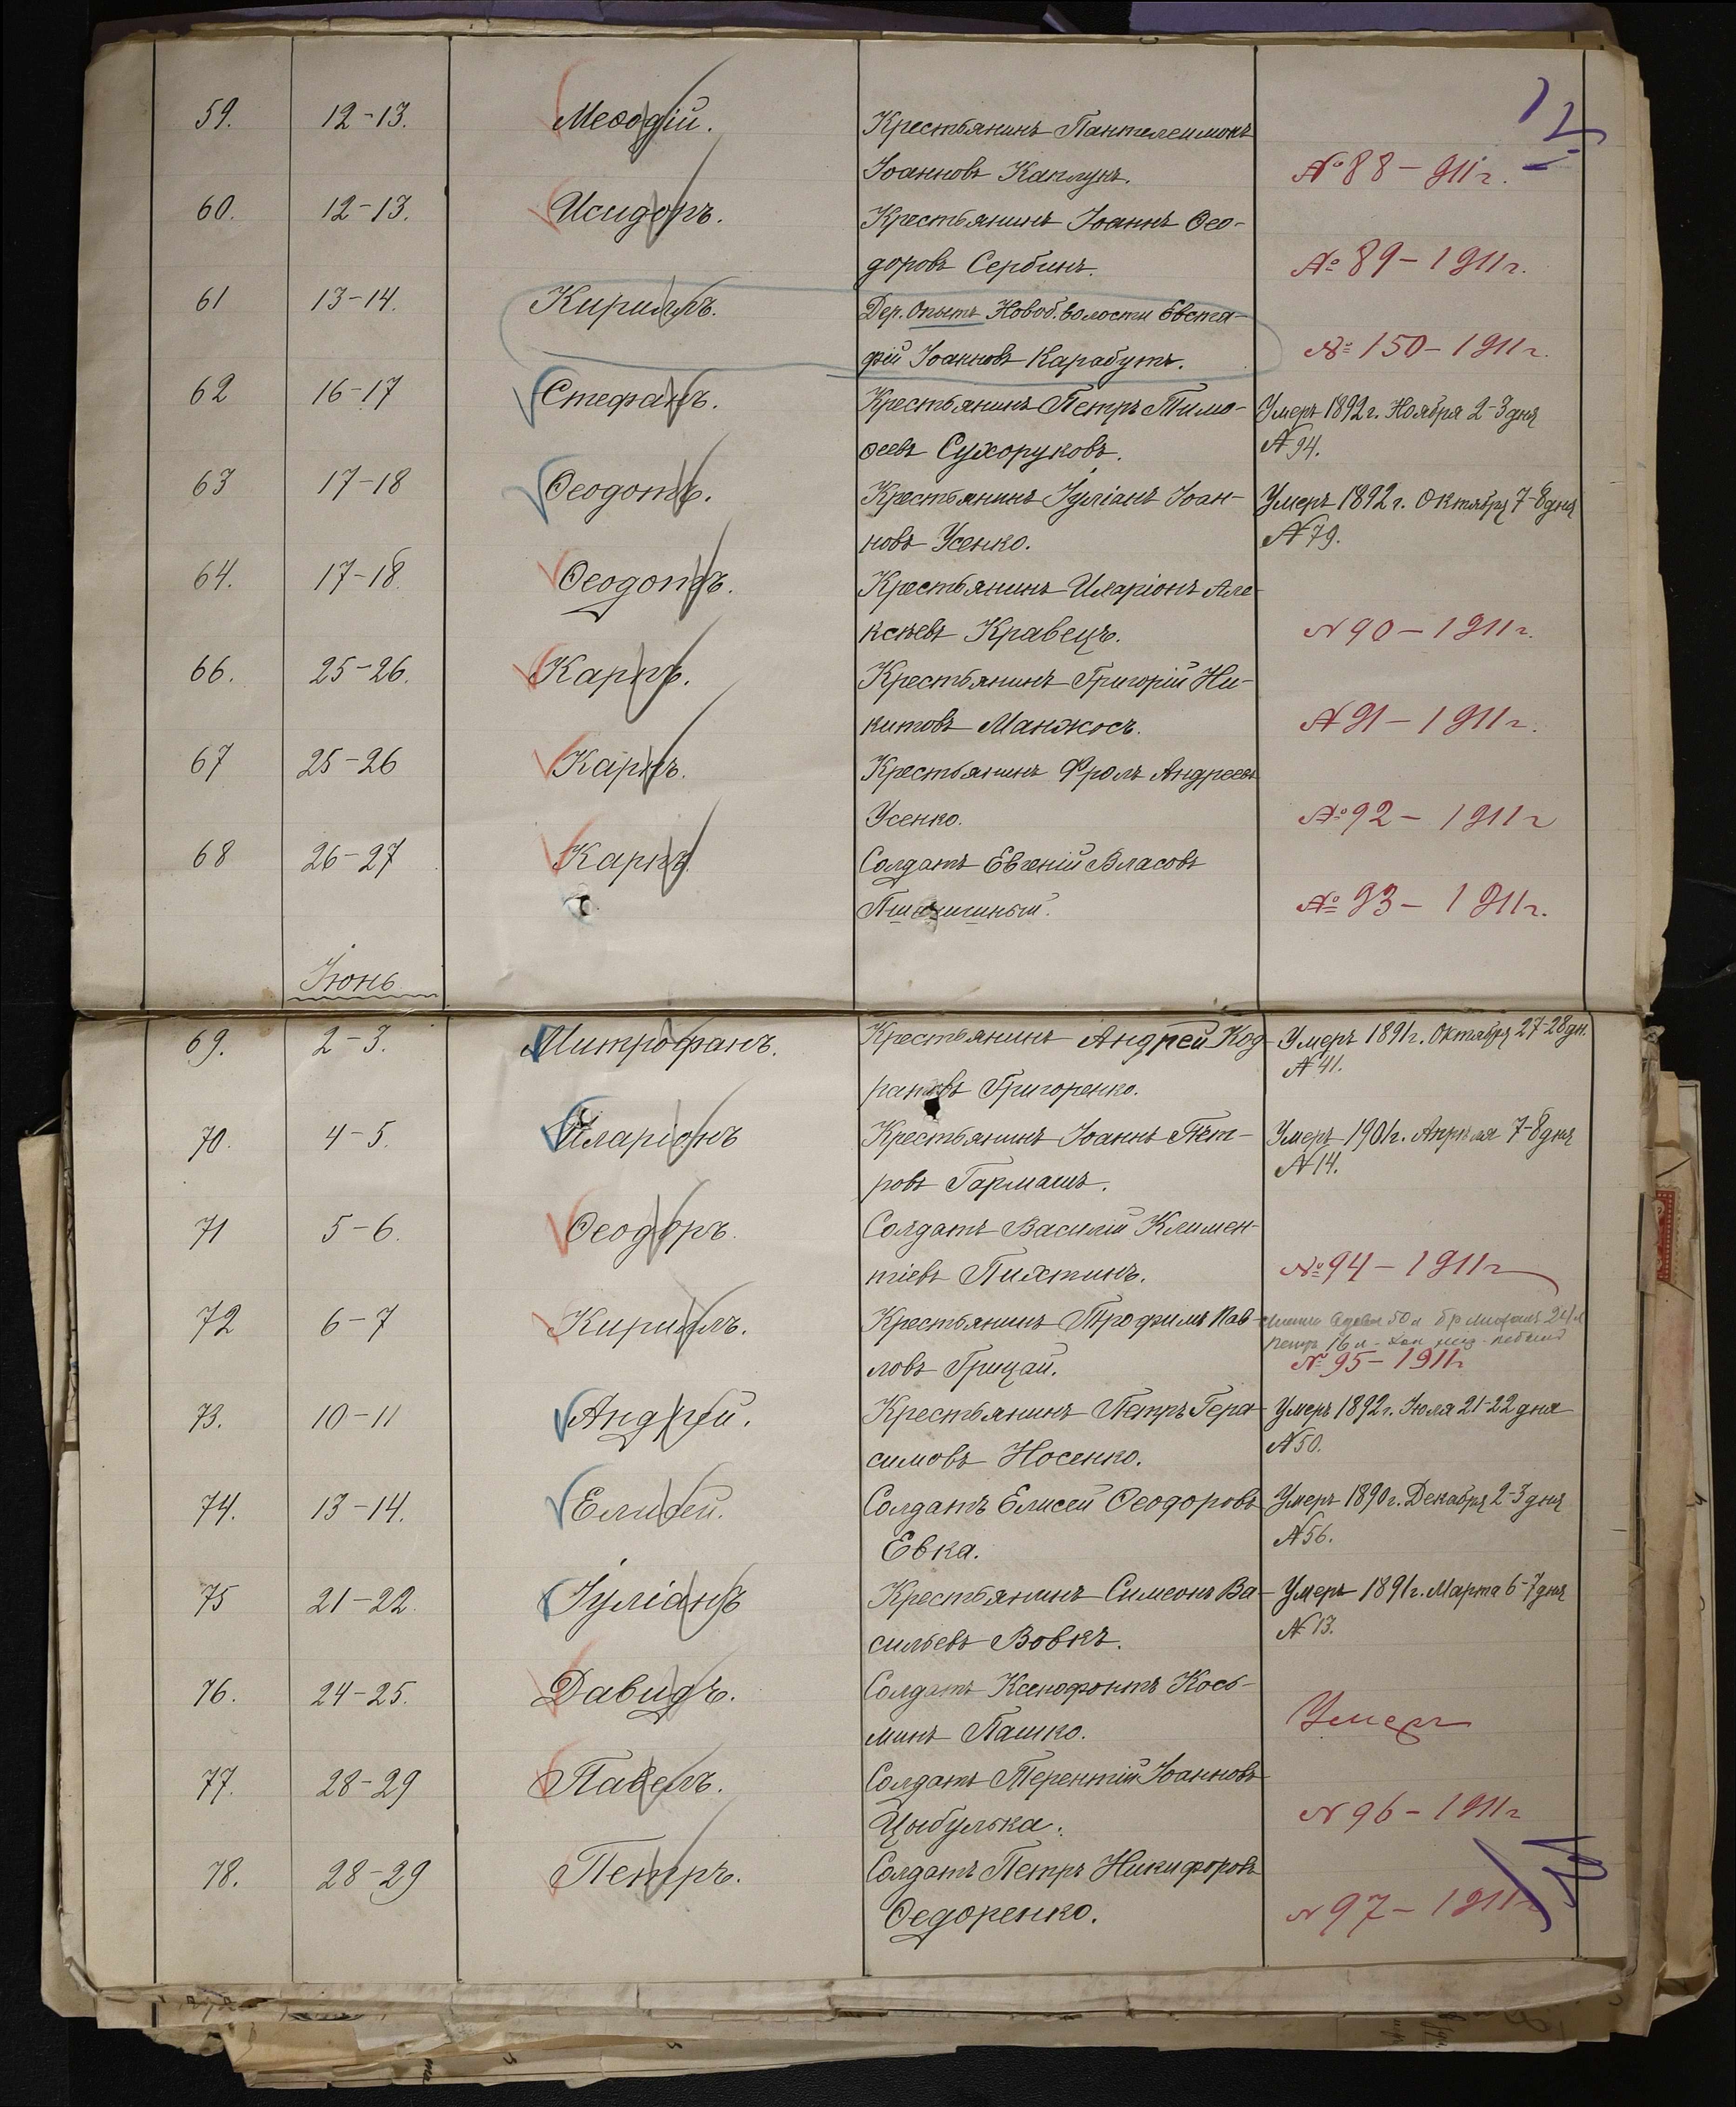 12
59. 12-13. Меѳодій. Крестьянинъ Пантелеимонъ
Іоанновъ Каплунъ. №88-911г.
60. 12-13. Исидоръ. Крестьянинъ Іоаннъ Ѳео-
доровъ Сербинъ. №89-1911г.
61 13-14. Кириллъ. Дер. Опытъ Новоб. волости Евста-
фій Іоанновъ Карабутъ. №150-1911г.
62 16-17 Стефанъ. Крестьянинъ Петръ Тимо- Умеръ 1892г. Ноября 2-3 дня
ѳеевъ Сухоруковъ. №94.
63 17-18 Ѳеодотъ. Крестьянинъ Іуліанъ Іоан- Умеръ 1892г. Октября 7-8 дня
новъ Усенко. №79.
64. 17-18. Ѳеодотъ. Крестьянинъ Иларіонъ Але-
ксѣевъ Кравецъ. №90-1911г.
66. 25-26. Карпъ. Крестьянинъ Григорій Ни-
китовъ Манжосъ. №91-1911г.
67 25-26 Карпъ. Крестьянинъ Фролъ Андреевъ
Усенко. №92-1911г
68 26-27 Карпъ. Солдатъ Евгеній Власовъ
№93-1911г.
Іюнь
69. 2-3. Митрофанъ. Крестьянинъ Андрей Код- Умеръ 1891г. Октября 27-28 дн.
ратовъ Григоренко. №41.
70. 4-5. Иларіонъ Крестьянинъ Іоаннъ Пет- Умеръ 1901г. Апрѣля 7-8 дня
ровъ Гармашъ. №14.
71 5-6. Ѳеодоръ. Солдатъ Василій Климен-
тіевъ Пихтинъ. №94-1911г
72 6-7 Кириллъ. Крестьянинъ Трофимъ Пав- 50 л
Петръ 16 л
ловъ Грицай. №95-1911г
73. 10-11 Андрей. Крестьянинъ Петръ Гера- Умеръ 1892г. Іюля 21-22 дня
симовъ Носенко. №50.
74. 13-14. Елисей. Солдатъ Елисей Ѳеодоровъ Умеръ 1890г. Декабря 2-3 дня
Евка. №56.
75 21-22. Іуліанъ Крестьянинъ Симеонъ Ва- Умеръ 1891г. Марта 6-7 дня
сильевъ Вовкъ. №13.
76. 24-25. Давидъ. Солдатъ Ксенофонтъ Кось-
минъ Пашко. Умеръ
77. 28-29 Павелъ. Солдатъ Терентій Іоанновъ
Цыбулька. №96-1911г
78. 28-29 Петръ. Солдатъ Петръ Никифоровъ
Ѳедоренко. №97-1911г